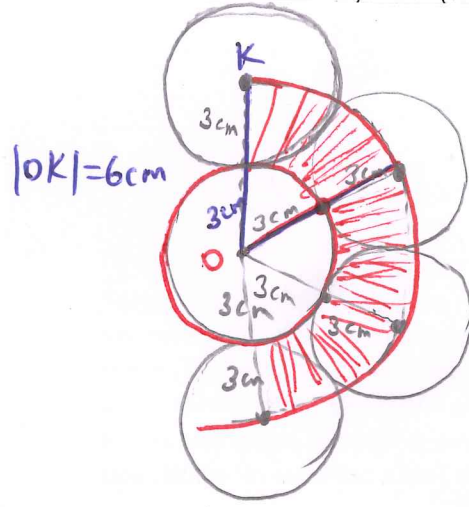 K
3cm
|OK|=6cm
3cm
3cm
3cm
O
3cm
3cm
3cm
3cm